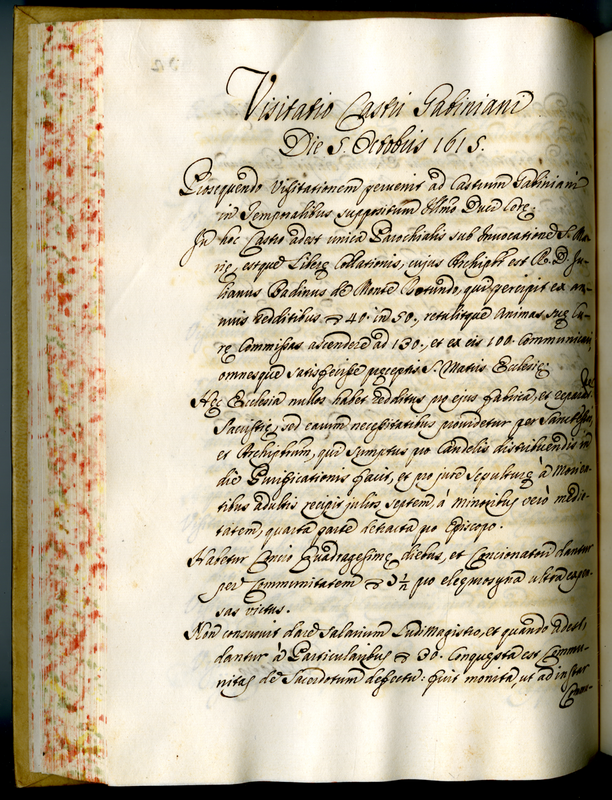 Visitatio Castri Gabiniani
Die 5. Octobris 1615.
Prosequendo Visitationem pervenit ad Castrum Gabiniani
in Temporalibus suppositum Illmo Duci
In hoc Castro adest unica Parochialis sub Invocatione S. Ma-
rię, estque Liberę Collationis, cujus Archipbr est R. D. Ju-
lianus Badinus de Monte Rotundo, qui percipit ex an-
nuis redditibus 40. in 50., retulitque animas suę Cu-
rę Commissas ascendere ad 130., et ex eis 100. Communicari,
omnesque satisfecisse pręceptis S. Matris Ecclesię.
Hęc Ecclesia nullos habet redditus pro ejus fabrica, et reparãe
Sacristię, sed earum necessitatibus providetur per
et Archipbrum, qui sumptus pro Candelis distribuendis in
die Purificationis facit, et pro jure sepulturę à Morien-
tibus adultis recipit julios septem, à minoribus verò medie-
tatem, quarta parte detracta pro Episcopo.
Habetur Concio Quadragesimę diebus, et Concionatori dantur
per Communitatem 3½ pro eleęmosyna ultra expen-
sas victus.
Non consuevit dare salarium Ludimagistro, et quando adest,
dantur à Particularibus 30. Conquesta est Commu-
nitas de Sacerdotum defectu: fuit monita, ut ad instar
Com-